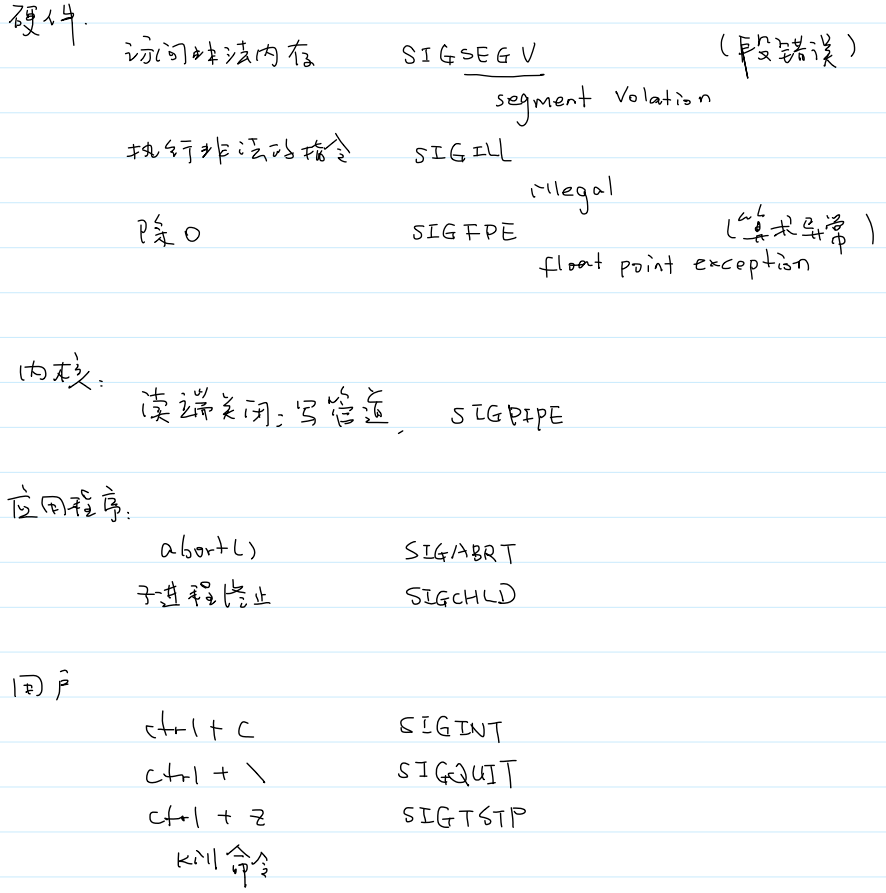 硬件.
访问非法内存 SIGSEGV (段错误)
segment Volation
执行非法的指令 SIGILL
illegal
除0 SIGFPE (算术异常)
float point exception
内核:
读端关闭: 写管道, SIGPIPE
应用程序:
abort() SIGABRT
子进程停止 SIGCHLD
用户
ctrl + C SIGINT
ctrl + \ SIGQUIT
ctrl + z SIGTSTP
kill 命令